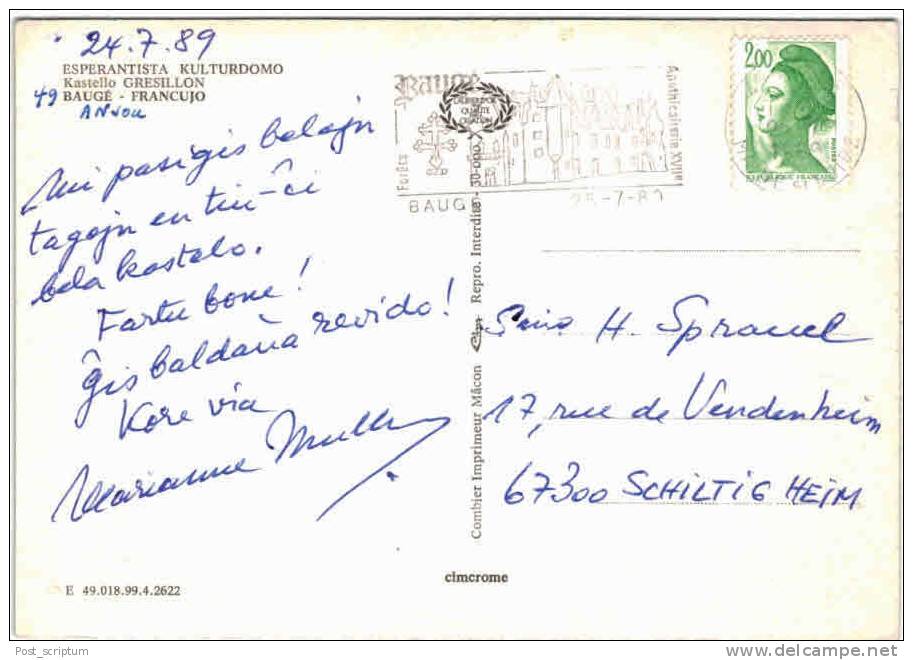 24.7.89
ESPERANTISTA KULTURDOMO
Kastello GRESILLON
49 BAUGÉ - FRANCUJO
ANJOU
Mi pasigis belajn
tagojn en tiu-ĉi
bela kastelo.
Fartu bone!
Ĝis baldaŭa revido!
Kore via
Marianne Muller
E 49.018.99.4.2622
Combier Imprimeur Mâcon
Repro. Interdite - 30-000
cimcrome
Baugé
Forêts
Apothicairerie XVIIe
BAUG
25-7-89
2,00
POSTES
REPUBLIQUE FRANÇAISE
H. Sprauel
17, rue de Vendenheim
67300 SCHILTIGHEIM
Post_scriptum
delcampe.net